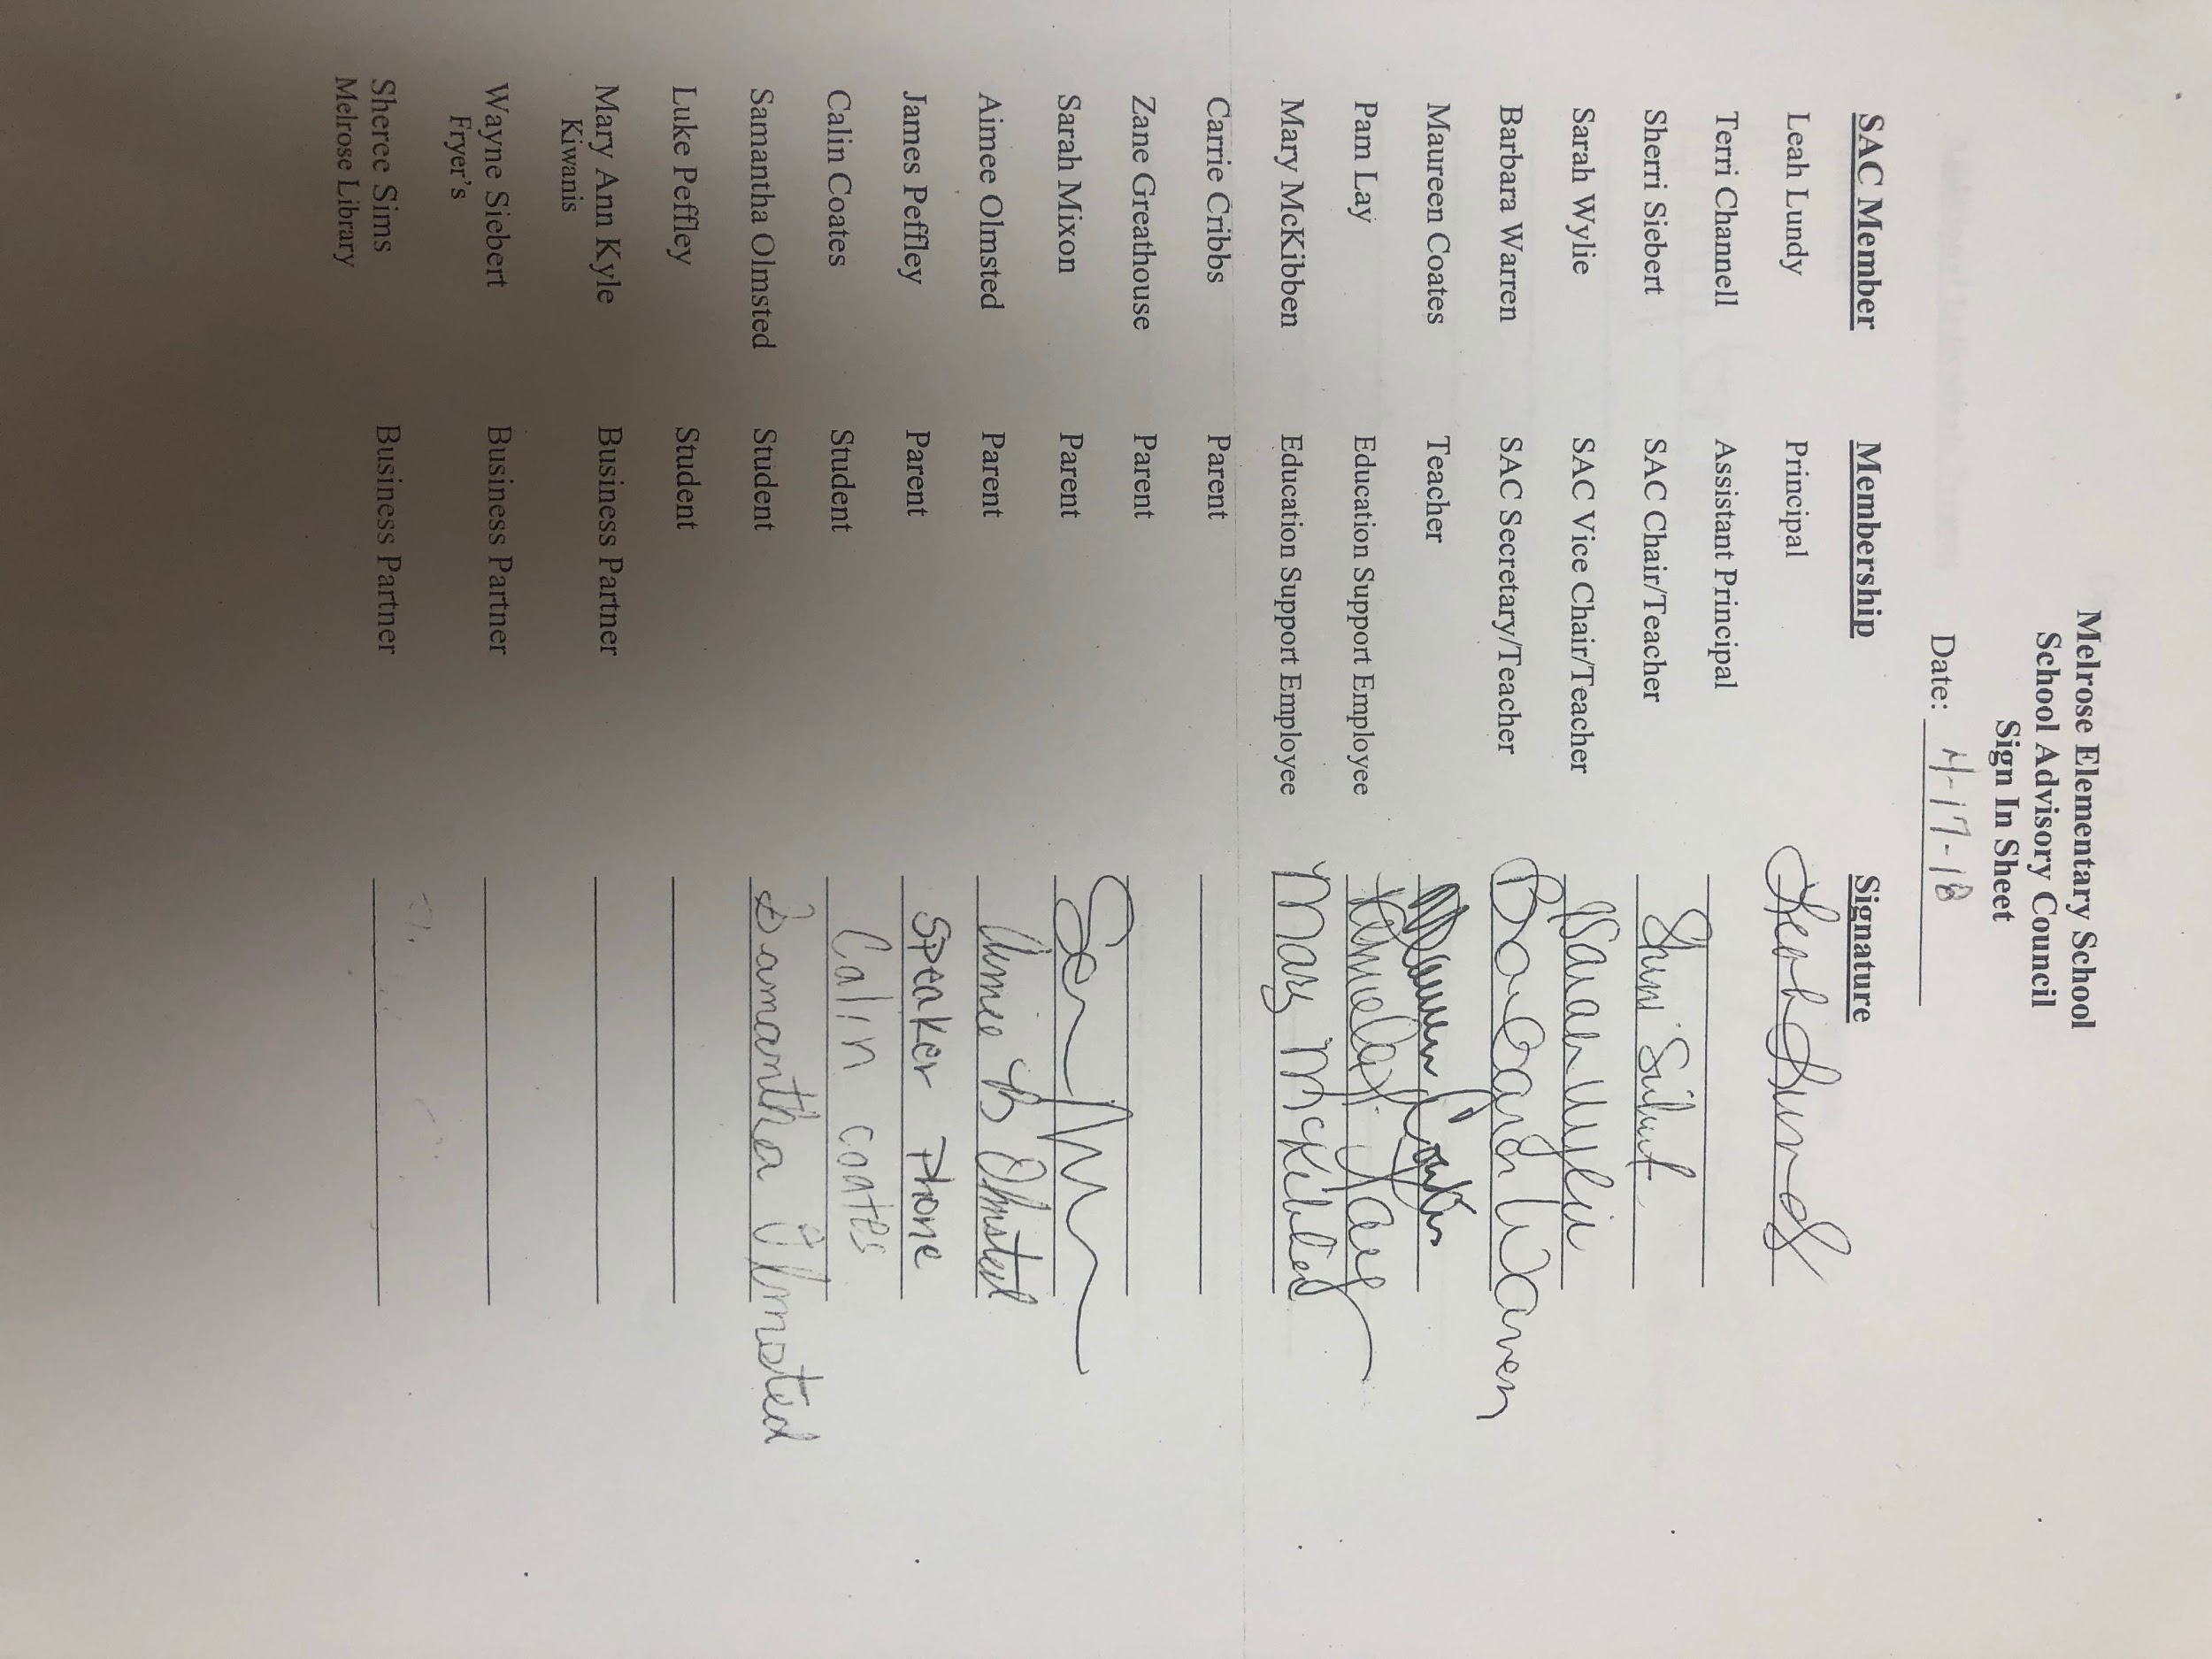 Melrose Elementary School
School Advisory Council
Sign In Sheet
Date: 4-17-18
SAC Member Membership Signature
Leah Lundy Principal Leah Lundy
Terri Channell Assistant Principal
Sherri Siebert SAC Chair/Teacher Sherri Siebert
Sarah Wylie SAC Vice Chair/Teacher Sarah Wylie
Barbara Warren SAC Secretary/Teacher Barbara Warren
Maureen Coates Teacher Maureen Coates
Pam Lay Education Support Employee
Mary McKibben Education Support Employee Mary McKibben
Carrie Cribbs Parent
Zane Greathouse Parent
Sarah Mixon Parent
Aimee Olmsted Parent Aimee B Olmsted
James Peffley Parent Speaker Phone
Calin Coates Student Calin coates
Samantha Olmsted Student Samantha Olmsted
Luke Peffley Student
Mary Ann Kyle Business Partner
Kiwanis
Wayne Siebert Business Partner
Fryer's
Sheree Sims Business Partner
Melrose Library